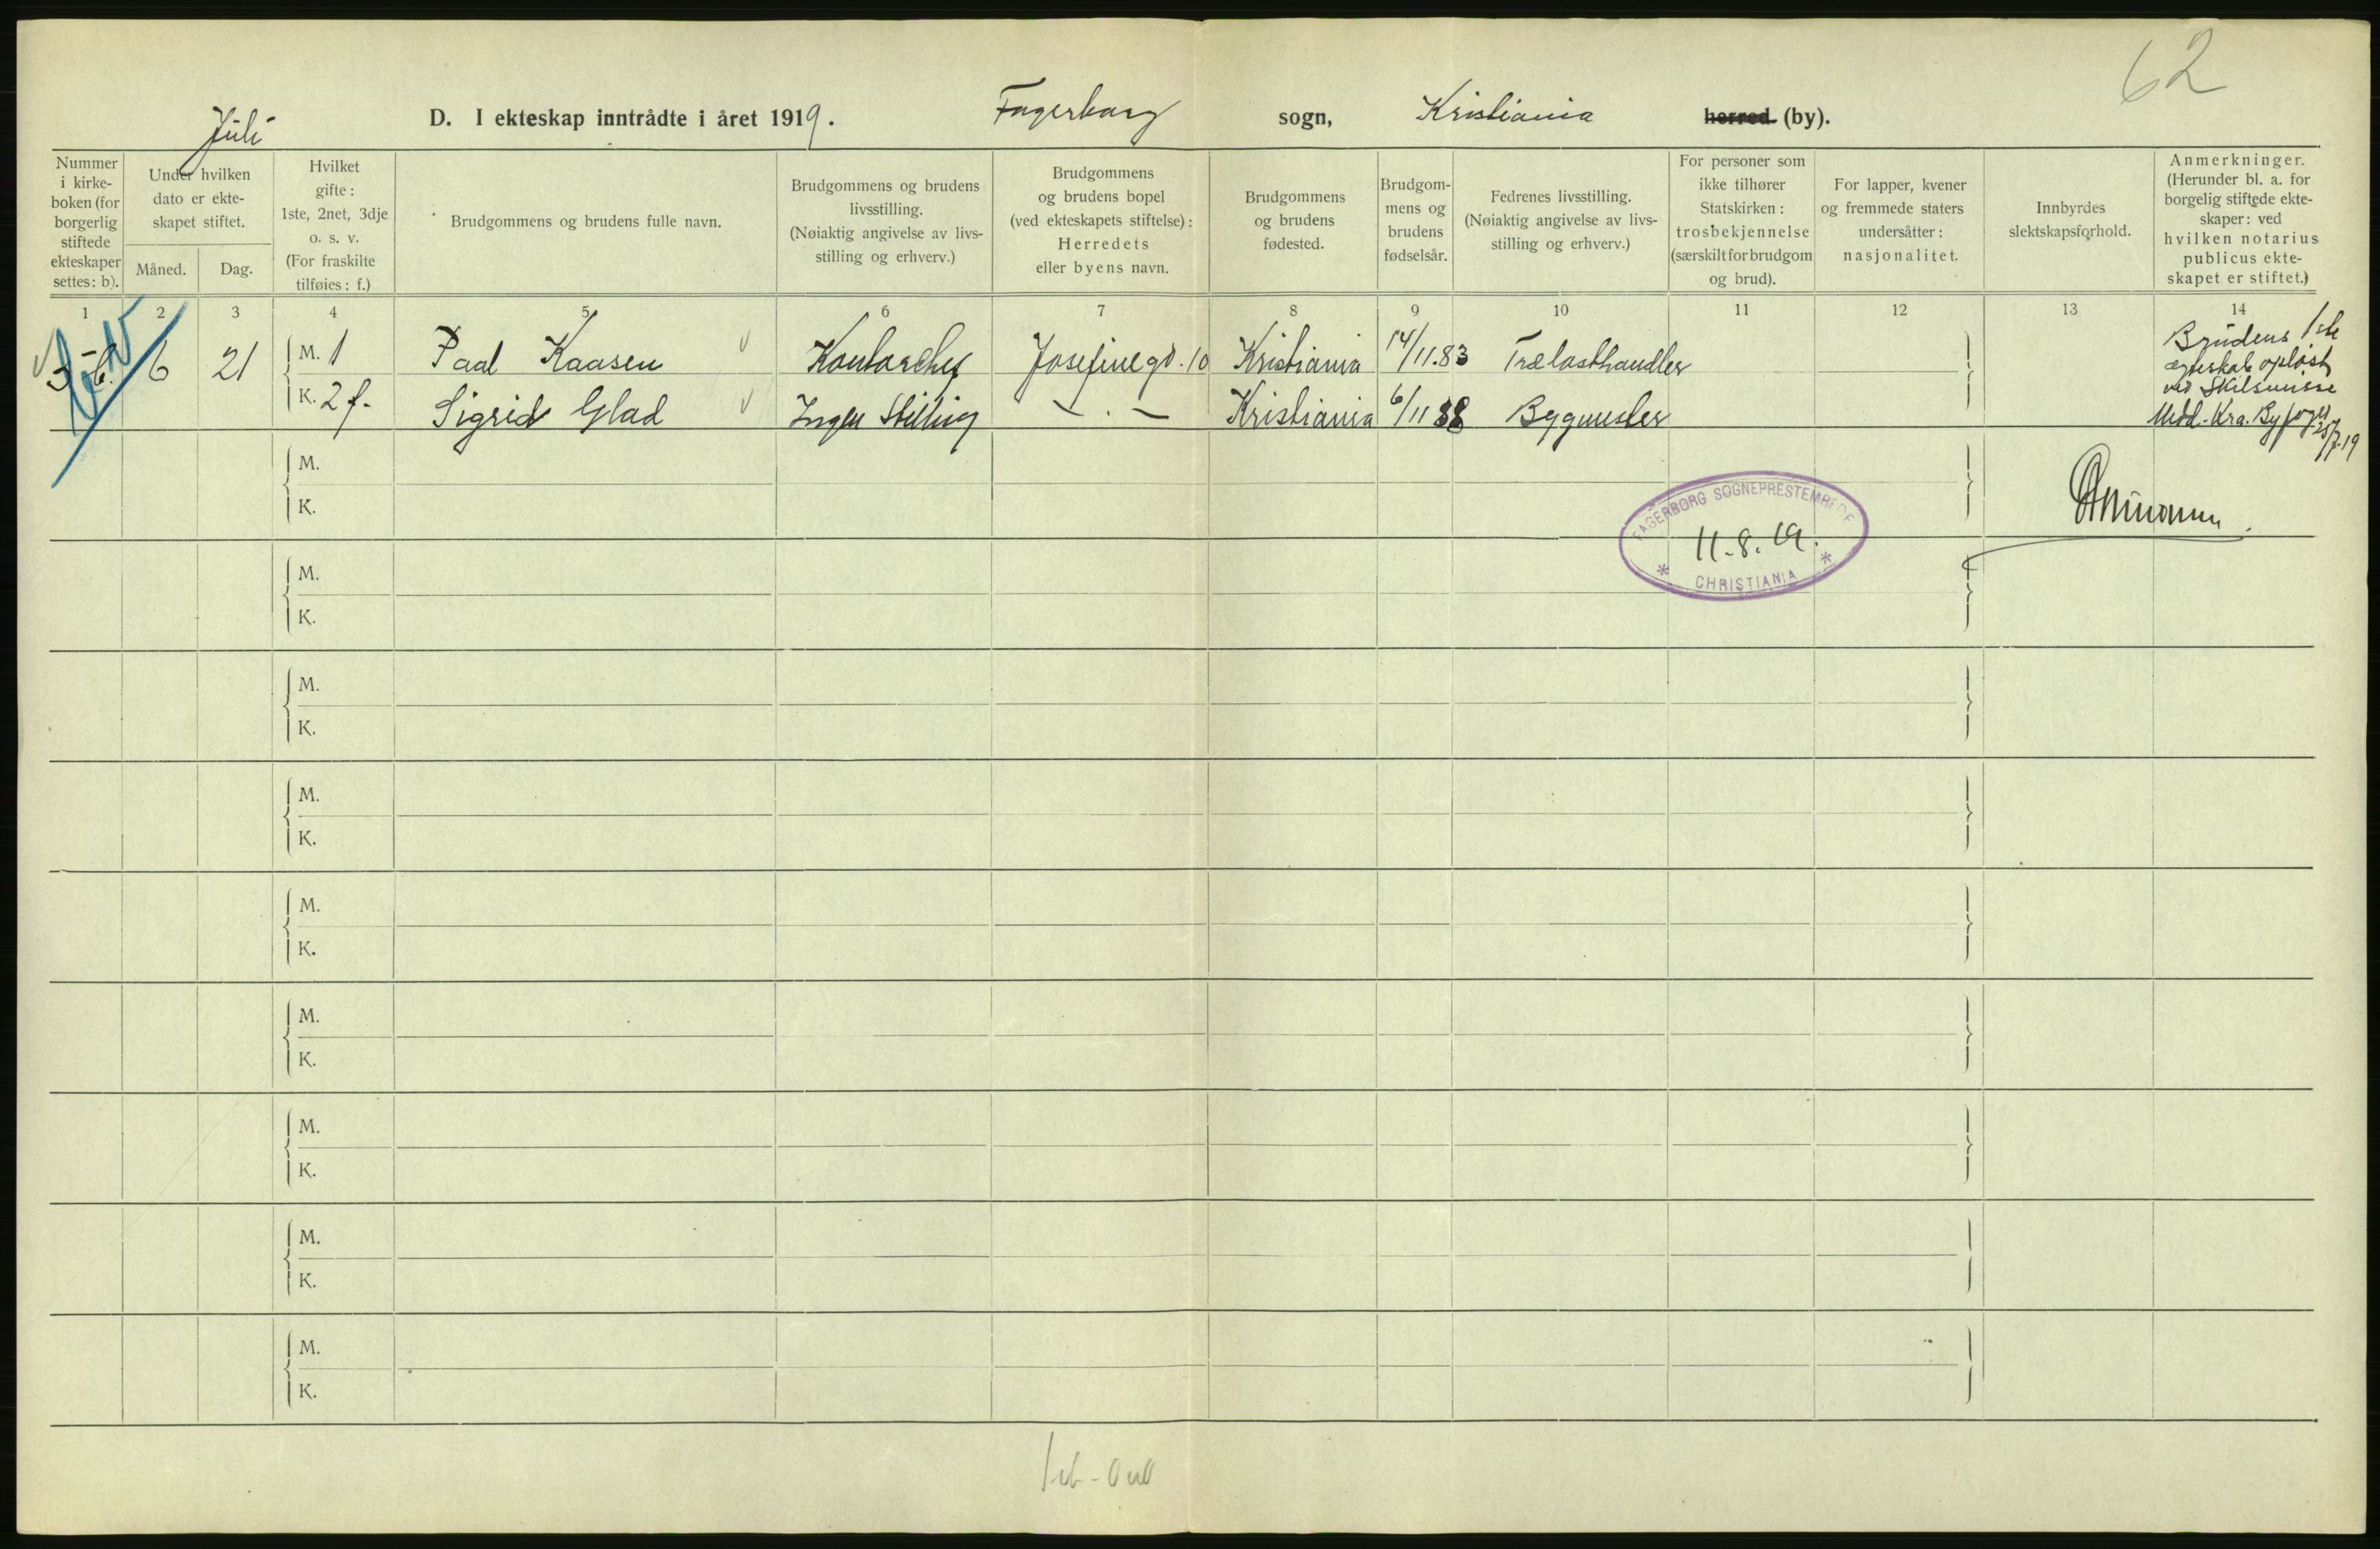 62
Juli D. I ekteskap inntrådte i året 1919. Fagerborg sogn, Kristiania herred (by).
Nummer
i kirke-
boken (for
borgerlig
stiftede
ekteskaper
settes: b).
Under hvilken
dato er ekte-
skapet stiftet.
Måned. Dag.
Hvilket
gifte:
1ste, 2net, 3dje
o. s. v.
(For fraskilte
tilføies: f.)
Brudgommens og brudens fulle navn.
Brudgommens og brudens
livsstilling.
(Nøiaktig angivelse av livs-
stilling og erhverv.)
Brudgommens
og brudens bopel
(ved ekteskapets stiftelse):
Herredets
eller byens navn.
Brudgommens
og brudens
fødested.
Brudgom-
mens og
brudens
fødselsår.
Fedrenes livsstilling.
(Nøiaktig angivelse av livs-
stilling og erhverv.)
For personer som
ikke tilhører
Statskirken:
trosbekjennelse
(særskilt for brudgom
og brud).
For lapper, kvener
og fremmede staters
undersåtter:
nasjonalitet.
Innbyrdes
slektskapsforhold.
Anmerkninger.
(Herunder bl. a. for
borgelig stiftede ekte-
skaper: ved
hvilken notarius
publicus ekte-
skapet er stiftet.)
1 2 3 4 5 6 7 8 9 10 11 12 13 14
6 21 M. 1 Paal Kaasen Kontorchef Josefinegd. 10 Kristiania 14/11.83 Trælasthandler
K. 2 f. Sigrid Glad Ingen Stilling — . — Kristiania 6/11 88 Bygmester
Brudens 1ste
ægteskab opløst
ved Skilsmisse
Medd. Kra. Byfoged
25/7.19
M.
K.
FAGERBORG SOGNEPRESTEMBEDE
11.8.19.
* CHRISTIANIA *
M.
K.
M.
K.
M.
K.
M.
K.
M.
K.
M.
K.
M.
K.
M.
K.